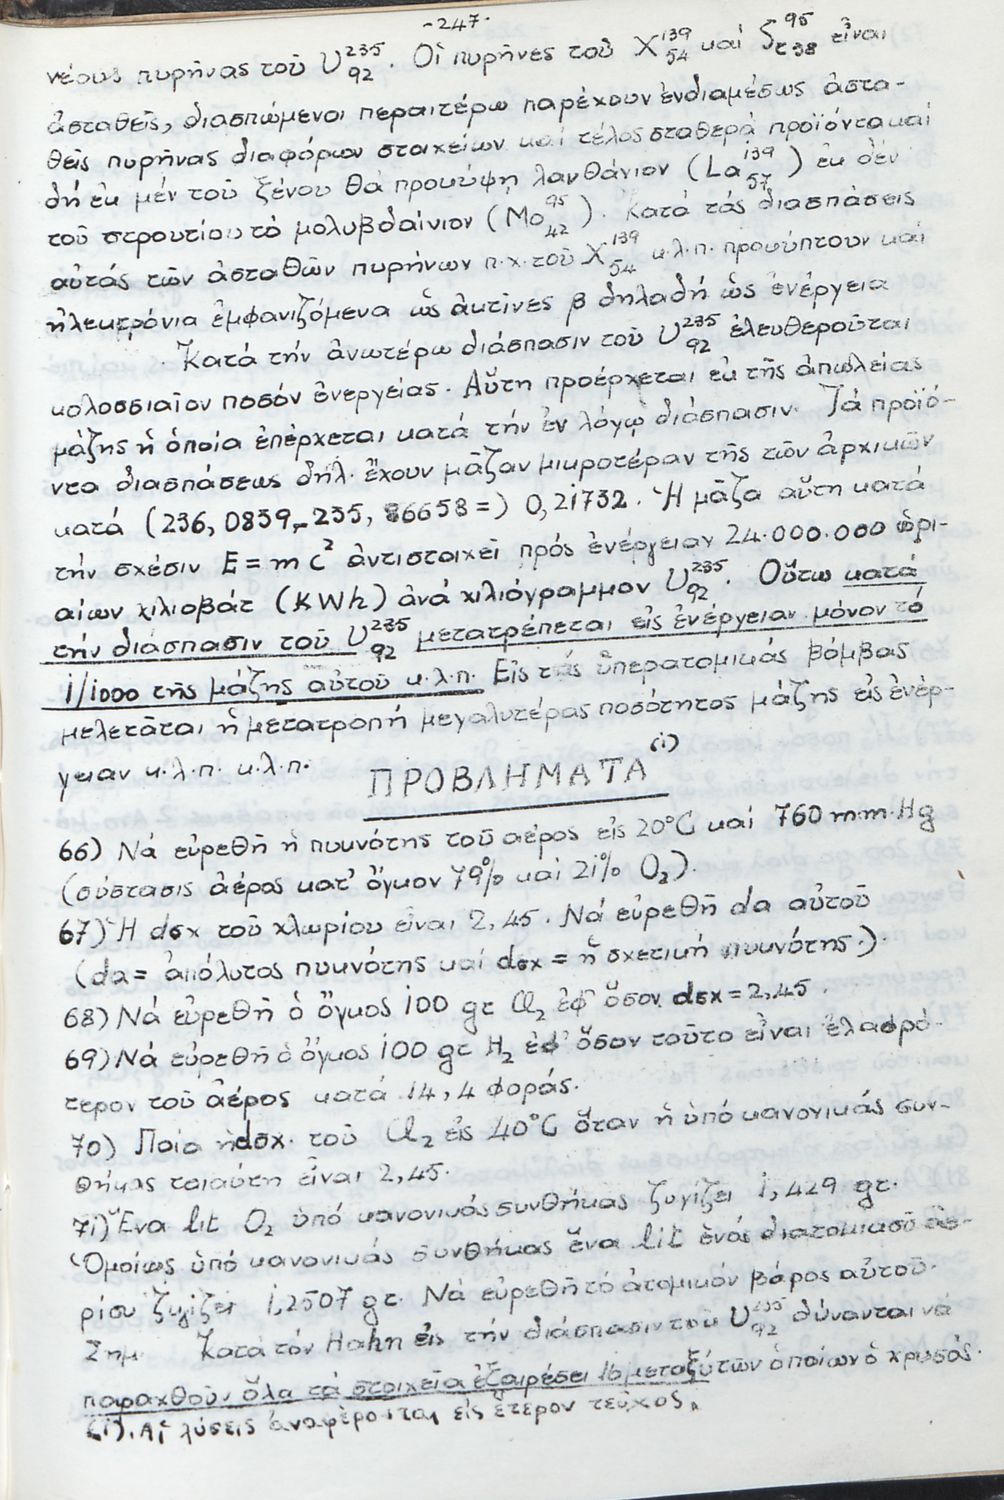 -247-
νέους πυρῆνας τοῦ U²³⁵₉₂. Οἱ πυρῆνες τοῦ X¹³⁹₅₄ καί Sτ⁹⁵₃₈ εἶναι
ἀσταθεῖς, διασπώμενοι περαιτέρω παρέχουν ἐνδιαμέσως ἀστα-
θεῖς πυρῆνας διαφόρων στοιχείων καί τέλος σταθερά προϊόντα καί
δή ἐκ μέν τοῦ ξένου θά προκύψῃ λανθάνιον (La¹³⁹₅₇) ἐκ δέν
τοῦ στροντίου τό μολυβδαίνιον (Mo⁹⁵₄₂). Κατά τάς διασπάσεις
αὐτάς τῶν ἀσταθῶν πυρήνων π.χ. τοῦ X¹³⁹₅₄ κ.λ.π. προκύπτουν καί
ἠλεκτρόνια ἐμφανιζόμενα ὡς ἀκτῖνες β δηλαδή ὡς ἐνέργεια
Κατά τήν ἀνωτέρω διάσπασιν τοῦ U²³⁵₉₂ ἐλευθεροῦται
κολοσσιαῖον ποσόν ἐνεργείας. Αὕτη προέρχεται ἐκ τῆς ἀπωλείας
μάζης ἡ ὁποία ἐπέρχεται κατά τήν ἐν λόγῳ διάσπασιν. Τά προϊό-
ντα διασπάσεως δηλ. ἔχουν μᾶζαν μικροτέραν τῆς τῶν ἀρχικῶν
κατά (236,0839-235,86658=) 0,21732. Ἡ μᾶζα αὕτη κατά
τήν σχέσιν E = mC² ἀντιστοιχεῖ πρός ἐνέργειαν 24.000.000 ὡρι-
αίων χιλιοβάτ (KWh) ἀνά χιλιόγραμμον U²³⁵₉₂. Οὕτω κατά
τήν διάσπασιν τοῦ U²³⁵₉₂ μετατρέπεται εἰς ἐνέργειαν μόνον τό
1/1000 τῆς μάζης αὐτοῦ κ.λ.π. Εἰς τάς ὑπερατομικάς βόμβας
μελετᾶται ἡ μετατροπή μεγαλυτέρας ποσότητος μάζης εἰς ἐνέρ-
γειαν κ.λ.π. κ.λ.π.
ΠΡΟΒΛΗΜΑΤΑ (1)
66) Νά εὑρεθῆ ἡ πυκνότης τοῦ αέρος εἰς 20°C καί 760 m.m. Hg
(σύστασις ἀέρος κατ' ὄγκον 79% καί 21% O₂).
67) Ἡ dσχ τοῦ χλωρίου εἶναι 2,45. Νά εὑρεθῆ dα αὐτοῦ
(dα = ἀπόλυτος πυκνότης καί dσχ = ἡ σχετική πυκνότης.).
68) Νά εὑρεθῆ ὁ ὄγκος 100 gτ Cl₂ ἐφ' ὅσον dσχ = 2,45.
69) Νά εὑρεθῆ ὁ ὄγκος 100 gτ H₂ ἐφ' ὅσον τοῦτο εἶναι ἐλαφρό-
τερον τοῦ ἀέρος κατά 14,4 φοράς.
70) Ποία ἡ dσχ. τοῦ Cl₂ εἰς 40°C ὅταν ἡ ὑπό κανονικάς συν-
θήκας τοιαύτη εἶναι 2,45.
71) Ἕνα lit O₂ ὑπό κανονικάς συνθήκας ζυγίζει 1,429 gτ.
Ὁμοίως ὑπό κανονικάς συνθήκας ἕνα lit ἑνός διατομικοῦ ἀε-
ρίου ζυγίζει 1,2507 gτ. Νά εὑρεθῆ τό ἀτομικόν βάρος αὐτοῦ.
Σημ. Κατά τόν Hahn εἰς τήν διάσπασιν τοῦ U²³⁵₉₂ δύνανται νά
παραχθοῦν ὅλα τά στοιχεῖα ἐξαιρέσει 16 μεταξύ τῶν ὁποίων ὁ χρυσός.
(1). Αἱ λύσεις ἀναφέρονται εἰς ἕτερον τεῦχος.